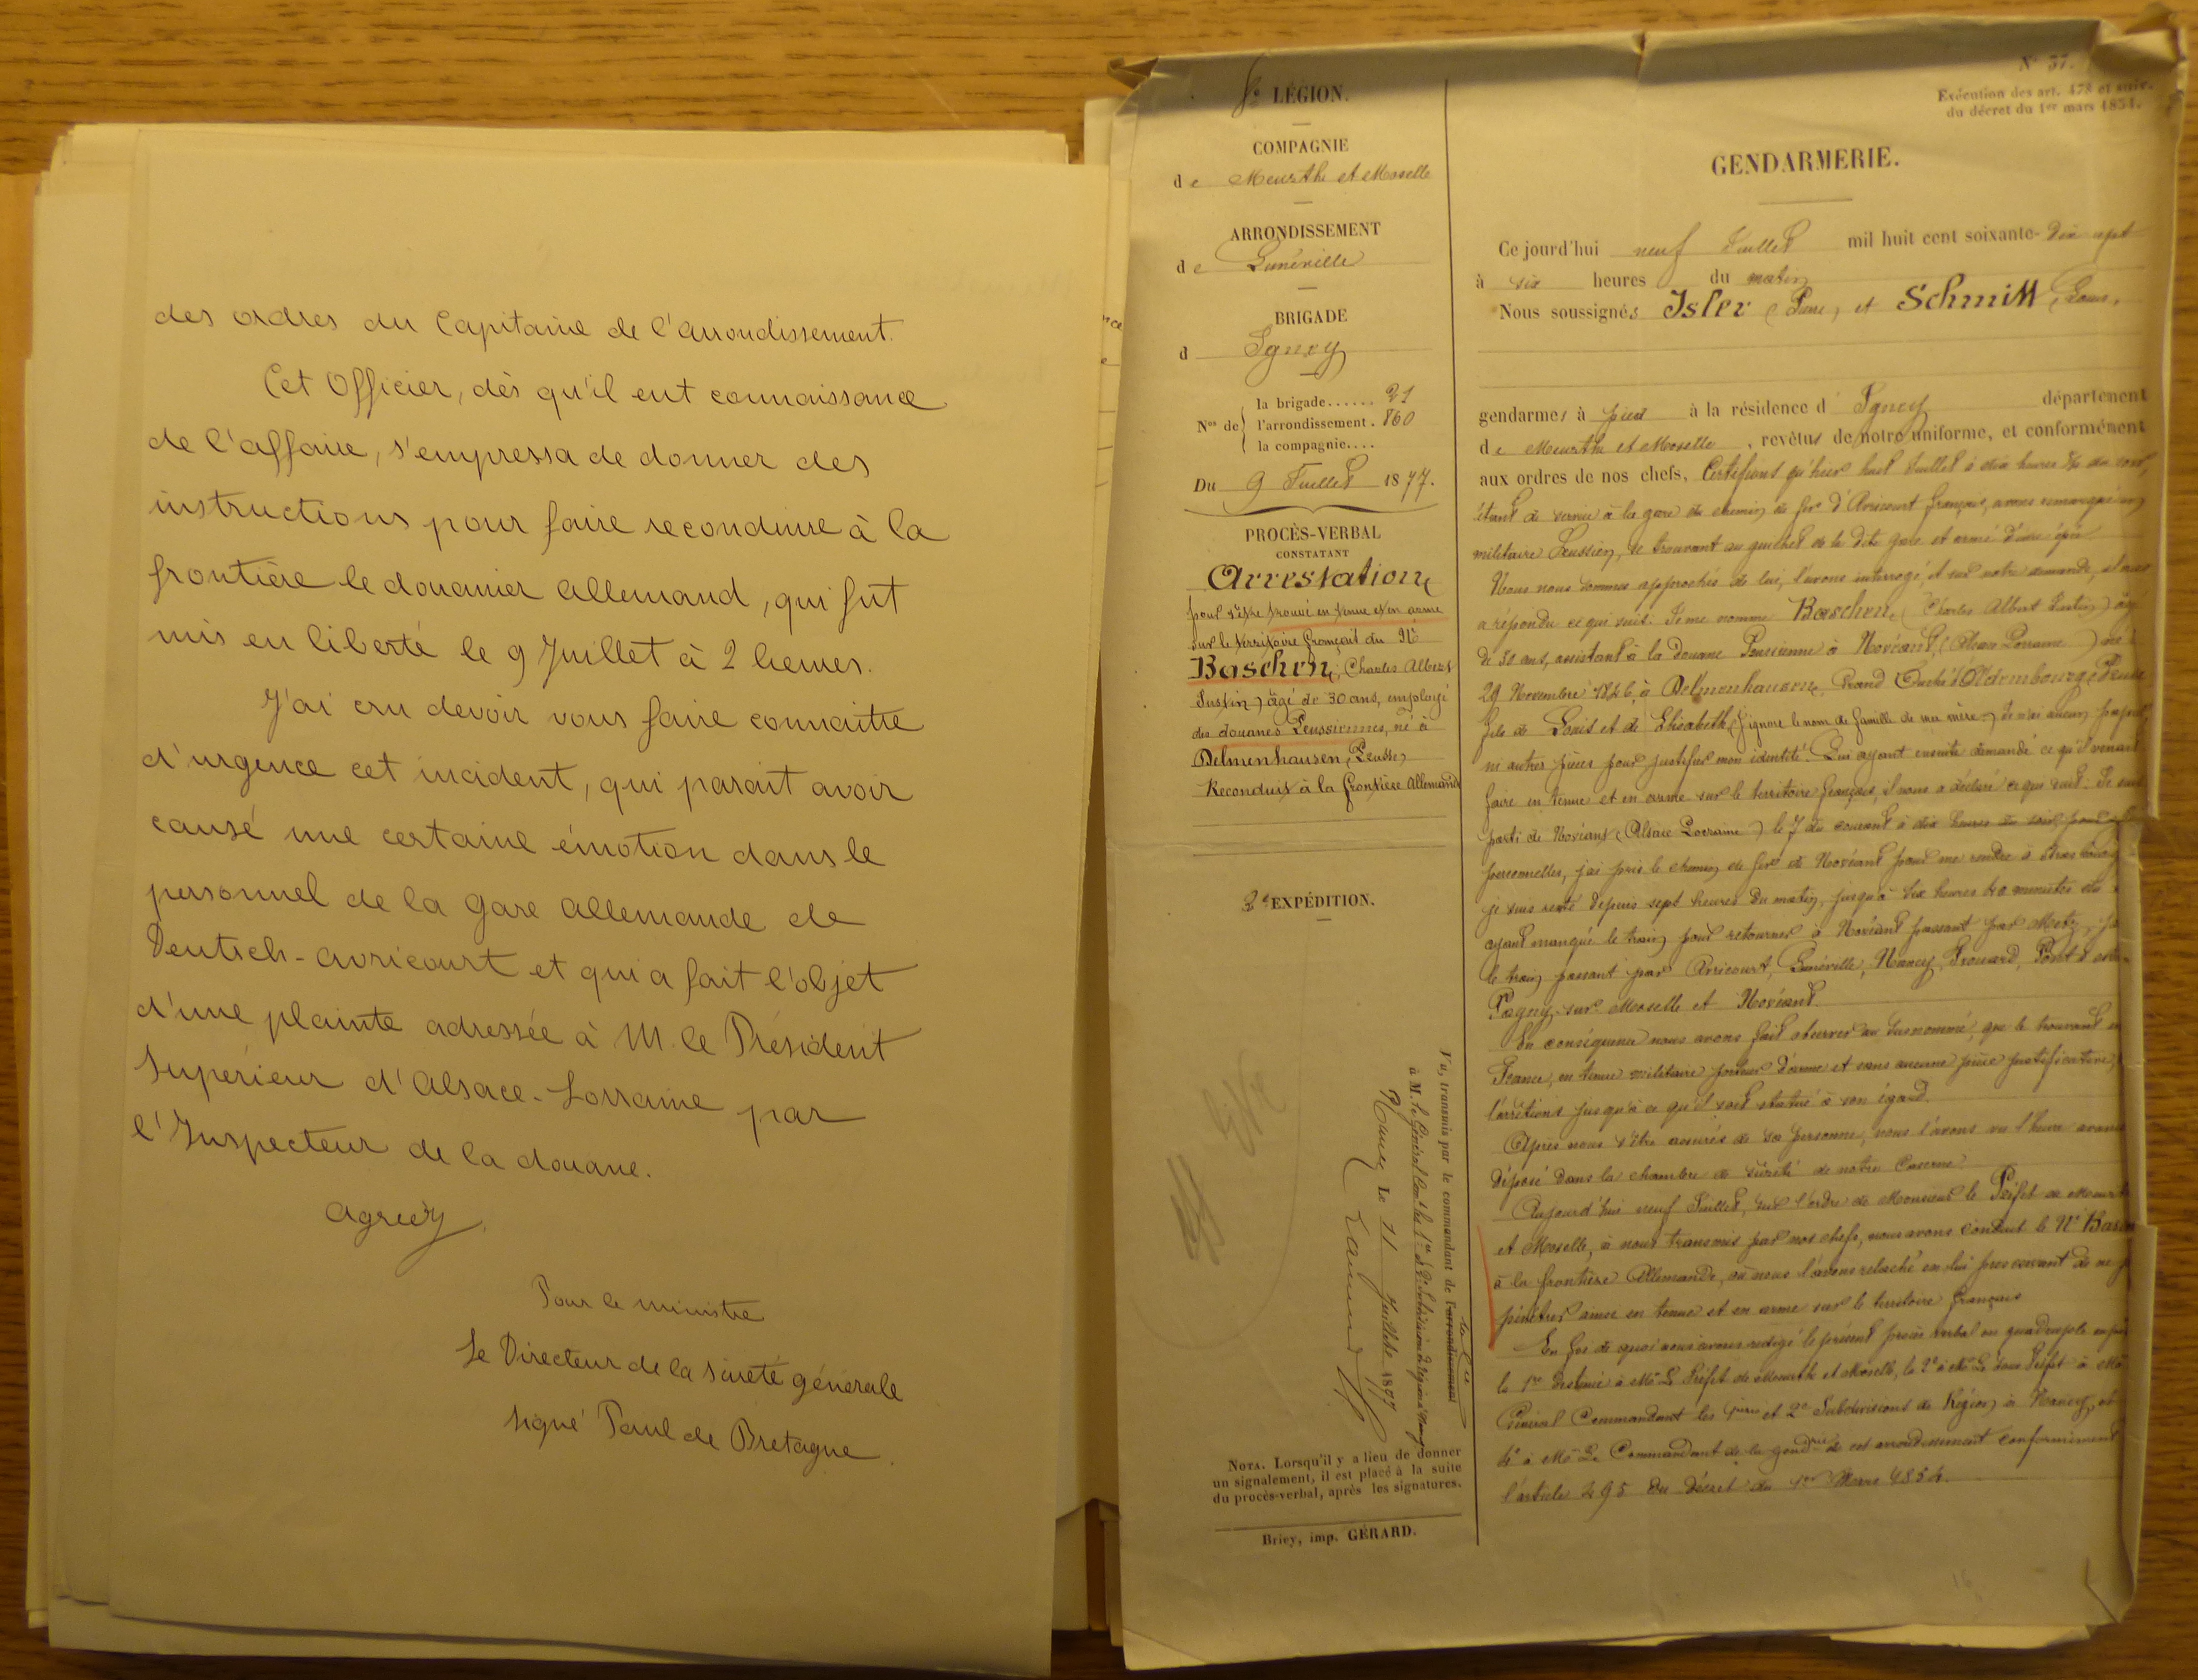 des ordres du Capitaine de l'arrondissement.
Cet Officier, dès qu'il eut connaissance
de l'affaire, s'empressa de donner des
instructions pour faire reconduire à la
frontière le douanier allemand, qui fut
mis en liberté le 9 Juillet à 2 heures.
J'ai cru devoir vous faire connaitre
d'urgence cet incident, qui parait avoir
causé une certaine émotion dans le
personnel de la gare allemande de
Deutsch-avricourt et qui a fait l'objet
d'une plainte adressée à M. le Président
Supérieur d'Alsace-Lorraine par
l'Inspecteur de la douane.
Agréez,
Pour le ministre
Le Directeur de la sûreté générale
signé Paul de Bretagne
LÉGION.
COMPAGNIE
de Meurthe et Moselle
ARRONDISSEMENT
de Lunéville
BRIGADE
d Igney
Nos de la brigade...... 21
l'arrondissement. 860
la compagnie....
Du 9 Juillet 1877.
PROCÈS-VERBAL
CONSTATANT
Arrestation
pour s'être trouvé en tenue et en arme
sur le territoire français du Né
Baschen, Charles Albert
Justin) âgé de 30 ans, employé
des douanes Prussiennes, né à
Delmenhausen (Prusse)
Reconduit à la frontière Allemande
2e EXPÉDITION.
Vu, transmis par le commandant de l'arrondissement
à M. le Général
Nancy Le 11 Juillet 1877
NOTA. Lorsqu'il y a lieu de donner
un signalement, il est placé à la suite
du procès-verbal, après les signatures.
Briey, imp. GÉRARD.
N° 37.
Exécution des art. 478 et suiv.
du décret du 1er mars 1854.
GENDARMERIE.
Ce jourd'hui neuf Juillet mil huit cent soixante-dix sept
à six heures du matin
Nous soussignés Isler et Schmitt, Louis,
gendarmes à pied à la résidence d'Igney département
de Meurthe et Moselle, revêtus de notre uniforme, et conformément
aux ordres de nos chefs, Certifions qu'hier huit Juillet à dix heures du soir,
étant de service à la gare du chemin de fer d'Avricourt français, avons remarqué un
militaire Prussien, se trouvant au guichet de la dite gare et armé d'une épée
Nous nous sommes approchés de lui, l'avons interrogé, et sur notre demande, il nous
a répondu ce qui suit: Je me nomme Baschen, (Charles Albert Justin) âgé
de 30 ans, assistant à la Douane Prussienne à Novéant, (Alsace Lorraine) né le
29 Novembre 1846, à Delmenhausen, Grand Duché d'Oldembourg (Prusse
fils de Louis et de Elisabeth (J'ignore le nom de famille de ma mère.) Je n'ai aucun papier
ni autres pièces pour justifier mon identité. Lui ayant ensuite demandé ce qu'il venait
faire en tenue et en arme sur le territoire français, il nous a déclaré ce qui suit: Je suis
parti de Novéant (Alsace Lorraine) le 7 du courant à dix heures du soir, pour
personnelles, j'ai pris le chemin de fer de Novéant pour me rendre à Strasbourg
je suis resté depuis sept heures du matin, jusqu'à six heures 40 minutes du
ayant manqué le train pour retourner à Novéant passant par Metz, j'ai
le train passant par Avricourt, Lunéville, Nancy, Frouard, Pont à
Pagny sur Moselle et Novéant.
En conséquence nous avons fait observer au susnommé, que le trouvant en
France, en tenue militaire porteur d'arme et sans aucune pièce justificative,
l'arrêtions jusqu'à ce qu'il soit statué à son égard.
Après nous être assurés de sa personne, nous l'avons vu l'heure avancée
déposé dans la chambre de sûreté de notre Caserne.
Aujourd'hui neuf Juillet, sur l'ordre de Monsieur le Préfet de Meurthe
et Moselle, à nous transmis par nos chefs, nous avons conduit le Né Basch
à la frontière Allemande, où nous l'avons relaché en lui prescrivant de ne
pénétrer ainsi en tenue et en arme sur le territoire français
En foi de quoi nous avons rédigé le présent procès verbal en quadruple
la 1re destinée à Mr Le Préfet de Meurthe et Moselle, la 2e à Mr Le Sous Préfet
Général Commandant les 1ère et 2e Subdivisions de Région à Nancy,
4e à Mr Le Commandant de la gendrie de cet arrondissement conformément
l'article 495 du Décret du 1er Mars 1854.